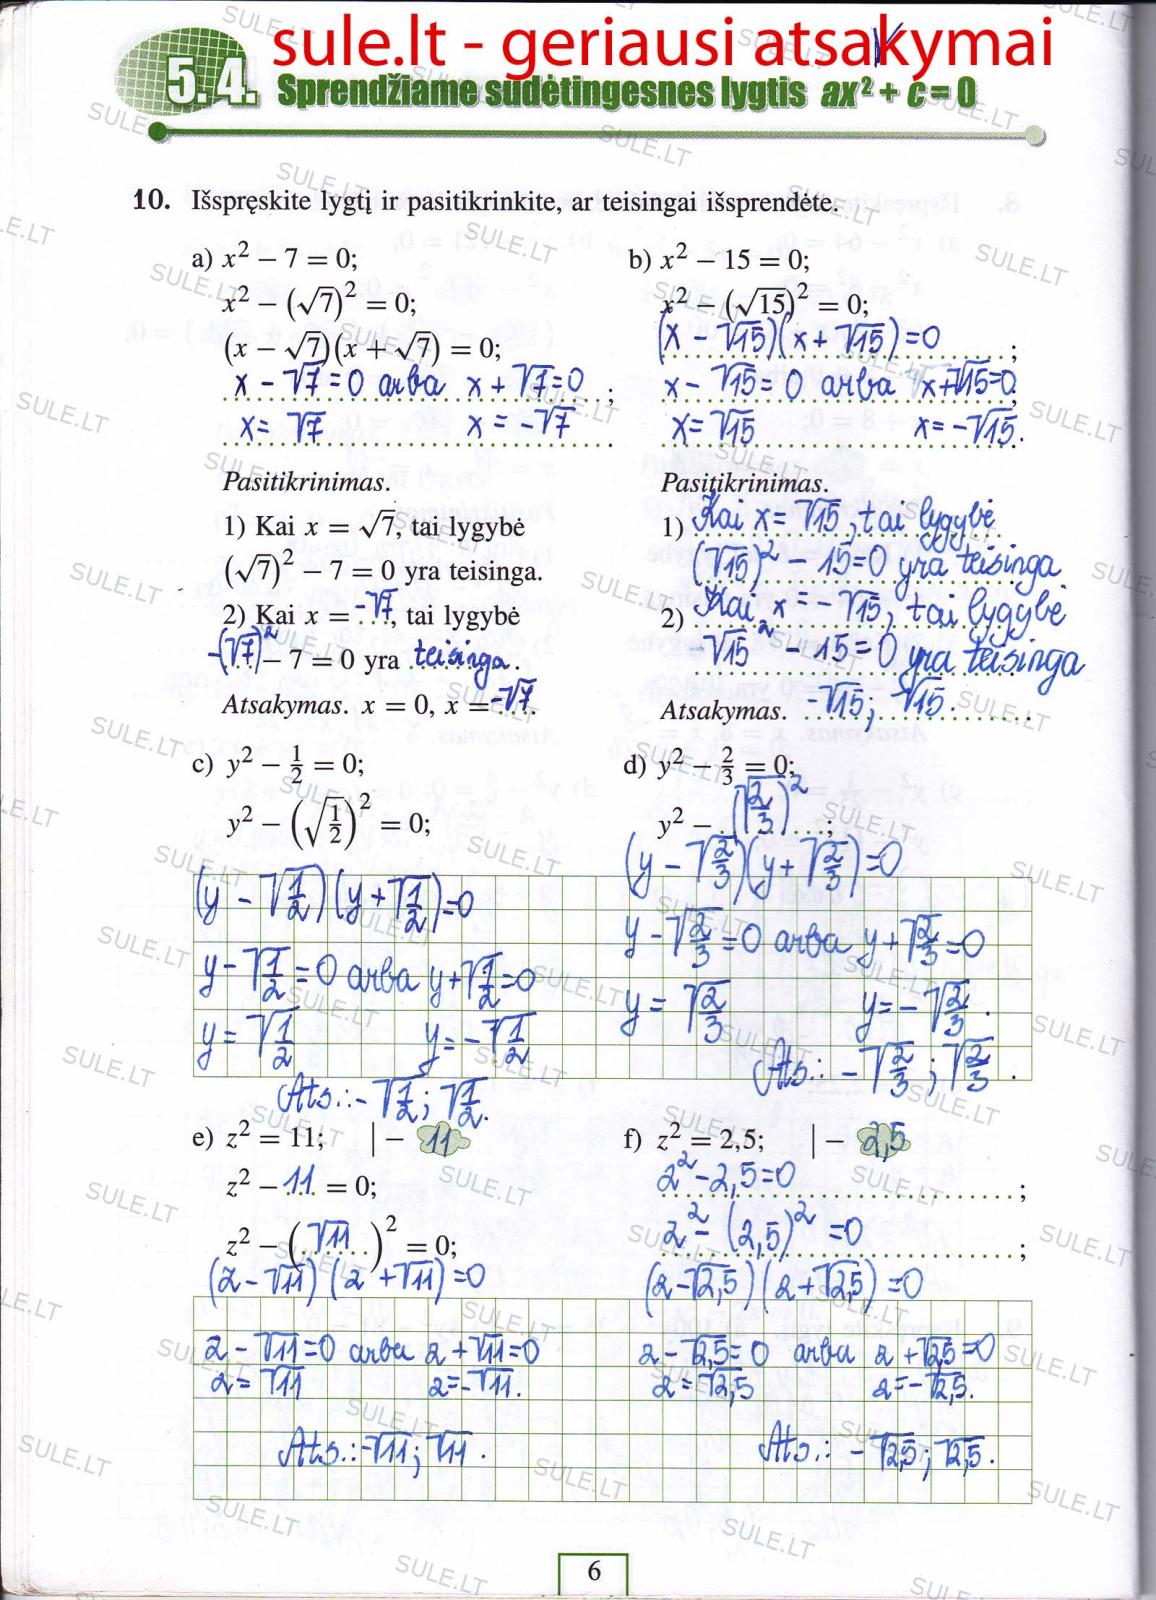 sule.lt - geriausi atsakymai
5.4. Sprendžiame sudėtingesnes lygtis ax² + c = 0
10. Išspręskite lygtį ir pasitikrinkite, ar teisingai išsprendėte.
a) x² − 7 = 0;
x² − (√7)² = 0;
(x − √7)(x + √7) = 0;
x − √7 = 0 arba x + √7 = 0 ;
x = √7 x = −√7
Pasitikrinimas.
1) Kai x = √7, tai lygybė
(√7)² − 7 = 0 yra teisinga.
2) Kai x = −√7, tai lygybė
−(√7)² − 7 = 0 yra teisinga.
Atsakymas. x = 0, x = −√7.
b) x² − 15 = 0;
x² − (√15)² = 0;
(x − √15)(x + √15) = 0 ;
x − √15 = 0 arba x + √15 = 0;
x = √15 x = −√15.
Pasitikrinimas.
1) Kai x = √15, tai lygybė
(√15)² − 15 = 0 yra teisinga
2) Kai x = −√15, tai lygybė
−√15² − 15 = 0 yra teisinga
Atsakymas. −√15; √15.
c) y² − 1/2 = 0;
y² − (√1/2)² = 0;
(y − √1/2)(y + √1/2) = 0
y − √1/2 = 0 arba y + √1/2 = 0
y = √1/2 y = −√1/2
Ats.: −√1/2; √1/2.
d) y² − 2/3 = 0;
y² − (√2/3)² ;
(y − √2/3)(y + √2/3) = 0
y − √2/3 = 0 arba y + √2/3 = 0
y = √2/3 y = −√2/3.
Ats.: −√2/3; √2/3.
e) z² = 11; | − 11
z² − 11 = 0;
z² − (√11)² = 0;
(z − √11)(z + √11) = 0
z − √11 = 0 arba z + √11 = 0
z = √11 z = −√11.
Ats.: −√11; √11.
f) z² = 2,5; | − 2,5
z² − 2,5 = 0 ;
z² − (2,5)² = 0 ;
(z − √2,5)(z + √2,5) = 0
z − √2,5 = 0 arba z + √2,5 = 0
z = √2,5 z = −√2,5.
Ats.: −√2,5; √2,5.
6
SULE.LT